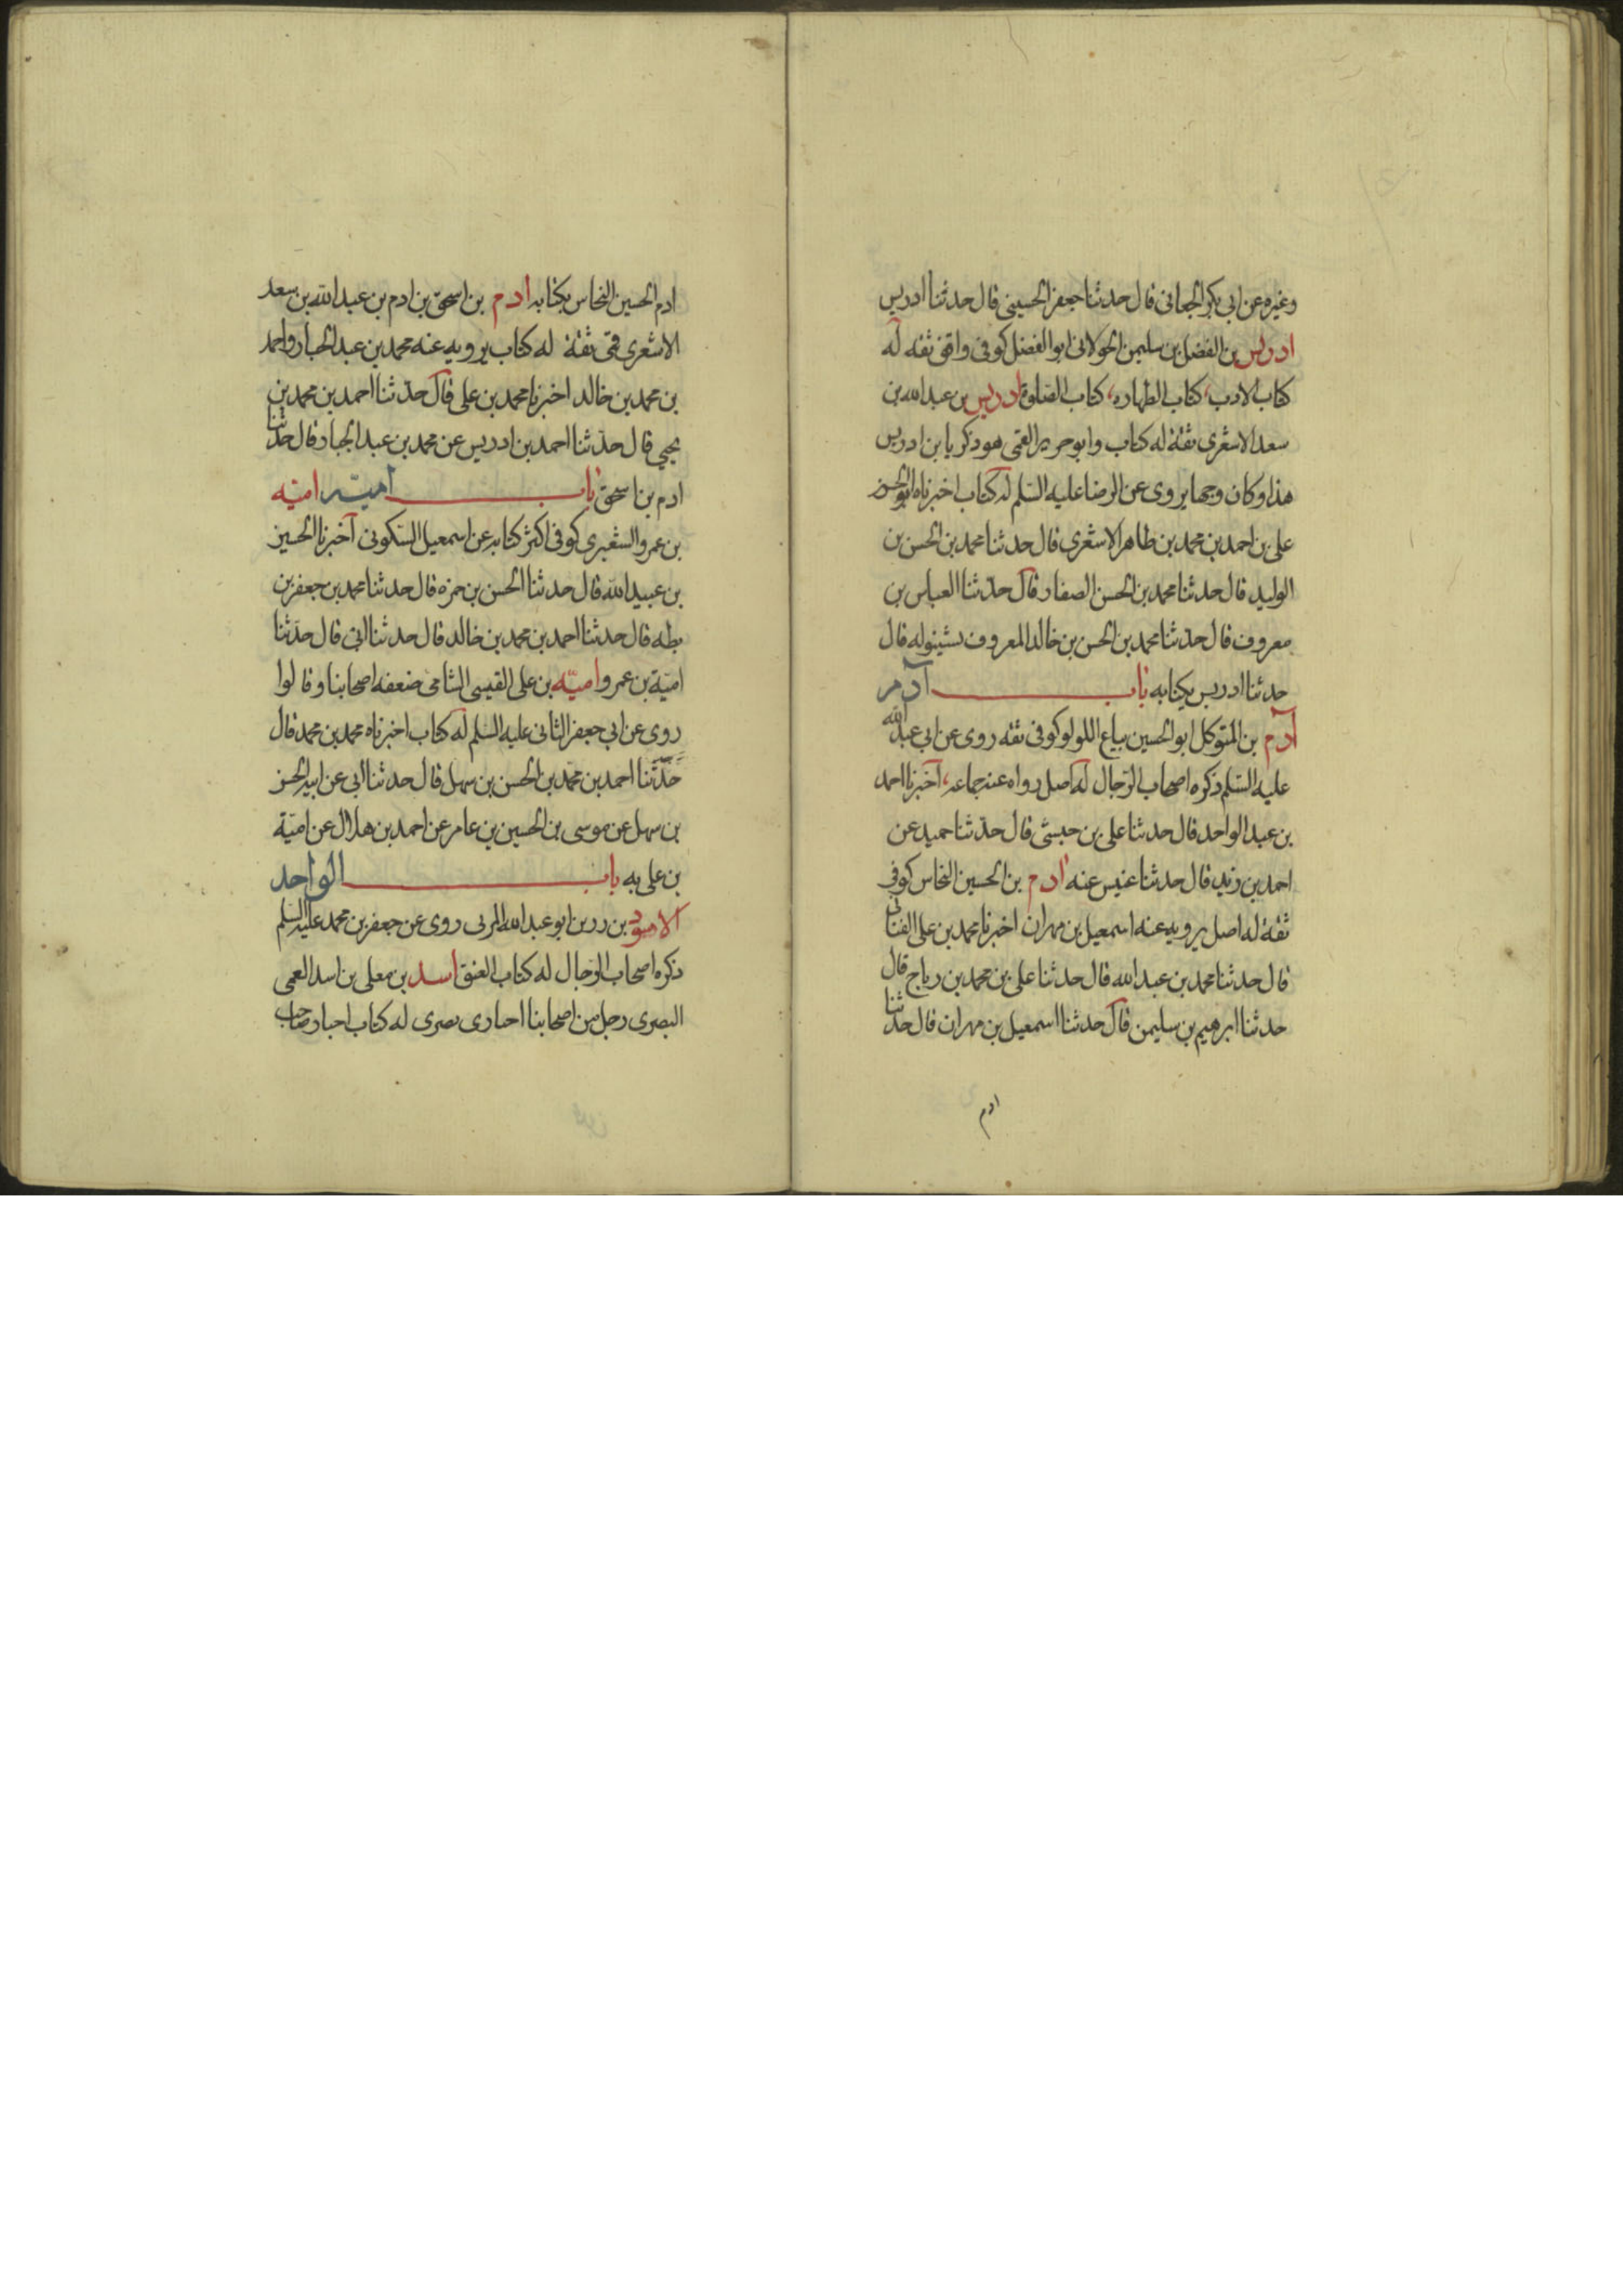 وغيره عن ابى بكر الجعابى قال حدثنا جعفر الحسينى قال حدثنا ادريس
ادريس بن الفضل بن سليمن الخولانى ابو الفضل كوفى واقفى ثقه له
كتاب الادب، كتاب الطهاره، كتاب الصلوة ادريس بن عبد الله بن
سعد الاشعرى ثقة له كتاب وابو جرير القمى هو زكريا بن ادريس
هذا وكان وجها يروى عن الرضا عليه السلم له كتاب اخبرناه ابو الحسن
على بن احمد بن محمد بن طاهر الاشعرى قال حدثنا محمد بن الحسن بن
الوليد قال حدثنا محمد بن الحسن الصفار قال حدثنا العباس بن
معروف قال حدثنا محمد بن الحسن بن خالد المعروف بشينوله قال
حدثنا ادريس بكتابه باب آدم
آدم بن المتوكل ابو الحسين بياع اللولو كوفى ثقه روى عن ابى عبد الله
عليه السلم ذكره اصحاب الرجال له اصل رواه عنه جماعه، اخبرنا احمد
بن عبد الواحد قال حدثنا على بن حبشى قال حدثنا حميد عن
احمد بن زيد قال حدثنا عبيس عنه ادم بن الحسين النخاس كوفى
ثقة له اصل يرويه عنه اسمعيل بن مهران اخبرنا محمد بن على القنانى
قال حدثنا محمد بن عبد الله قال حدثنا على بن محمد بن رباح قال
حدثنا ابرهيم بن سليمن قال حدثنا اسمعيل بن مهران قال حدثنا
ادم
ادم الحسين النخاس بكتابه ادم بن اسحق بن ادم بن عبد الله بن سعد
الاشعرى قمى ثقة له كتاب يرويه عنه محمد بن عبد الجبار واحمد
بن محمد بن خالد اخبرنا محمد بن على قال حدثنا احمد بن محمد بن
يحيى قال حدثنا احمد بن ادريس عن محمد بن عبد الجبار قال حدثنا
ادم بن اسحق باب امية اميه
بن عمرو الشعيرى كوفى اكثر كتابه عن اسمعيل السكونى اخبرنا الحسين
بن عبيد الله قال حدثنا الحسن بن حمزه قال حدثنا محمد بن جعفر بن
بطه قال حدثنا احمد بن محمد بن خالد قال حدثنا ابى قال حدثنا
امية بن عمرو اميه بن على القيسى الشامى ضعفه اصحابنا وقالوا
روى عن ابى جعفر الثانى عليه السلم له كتاب اخبرناه محمد بن محمد قال
حدثنا احمد بن محمد بن الحسن بن سهل قال حدثنا ابى عن ابيه الحسن
بن سهل عن موسى بن الحسين بن عامر عن احمد بن هلال عن امية
بن على به باب الواحد
الاسود بن رزين ابو عبد الله المزنى روى عن جعفر بن محمد عليه السلم
ذكره اصحاب الرجال له كتاب العتق اسد بن معلى بن اسد العمى
البصرى رجل من اصحابنا اخبارى بصرى له كتاب اخبار صاحب